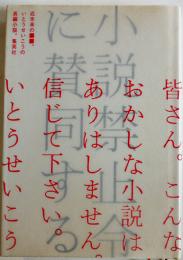 小説禁止令
に賛同する
近未来の禁書、
いとうせいこうの
長編小説。集英社
皆さん。こんな
おかしな小説は
ありはしません。
信じて下さい。
いとうせいこう